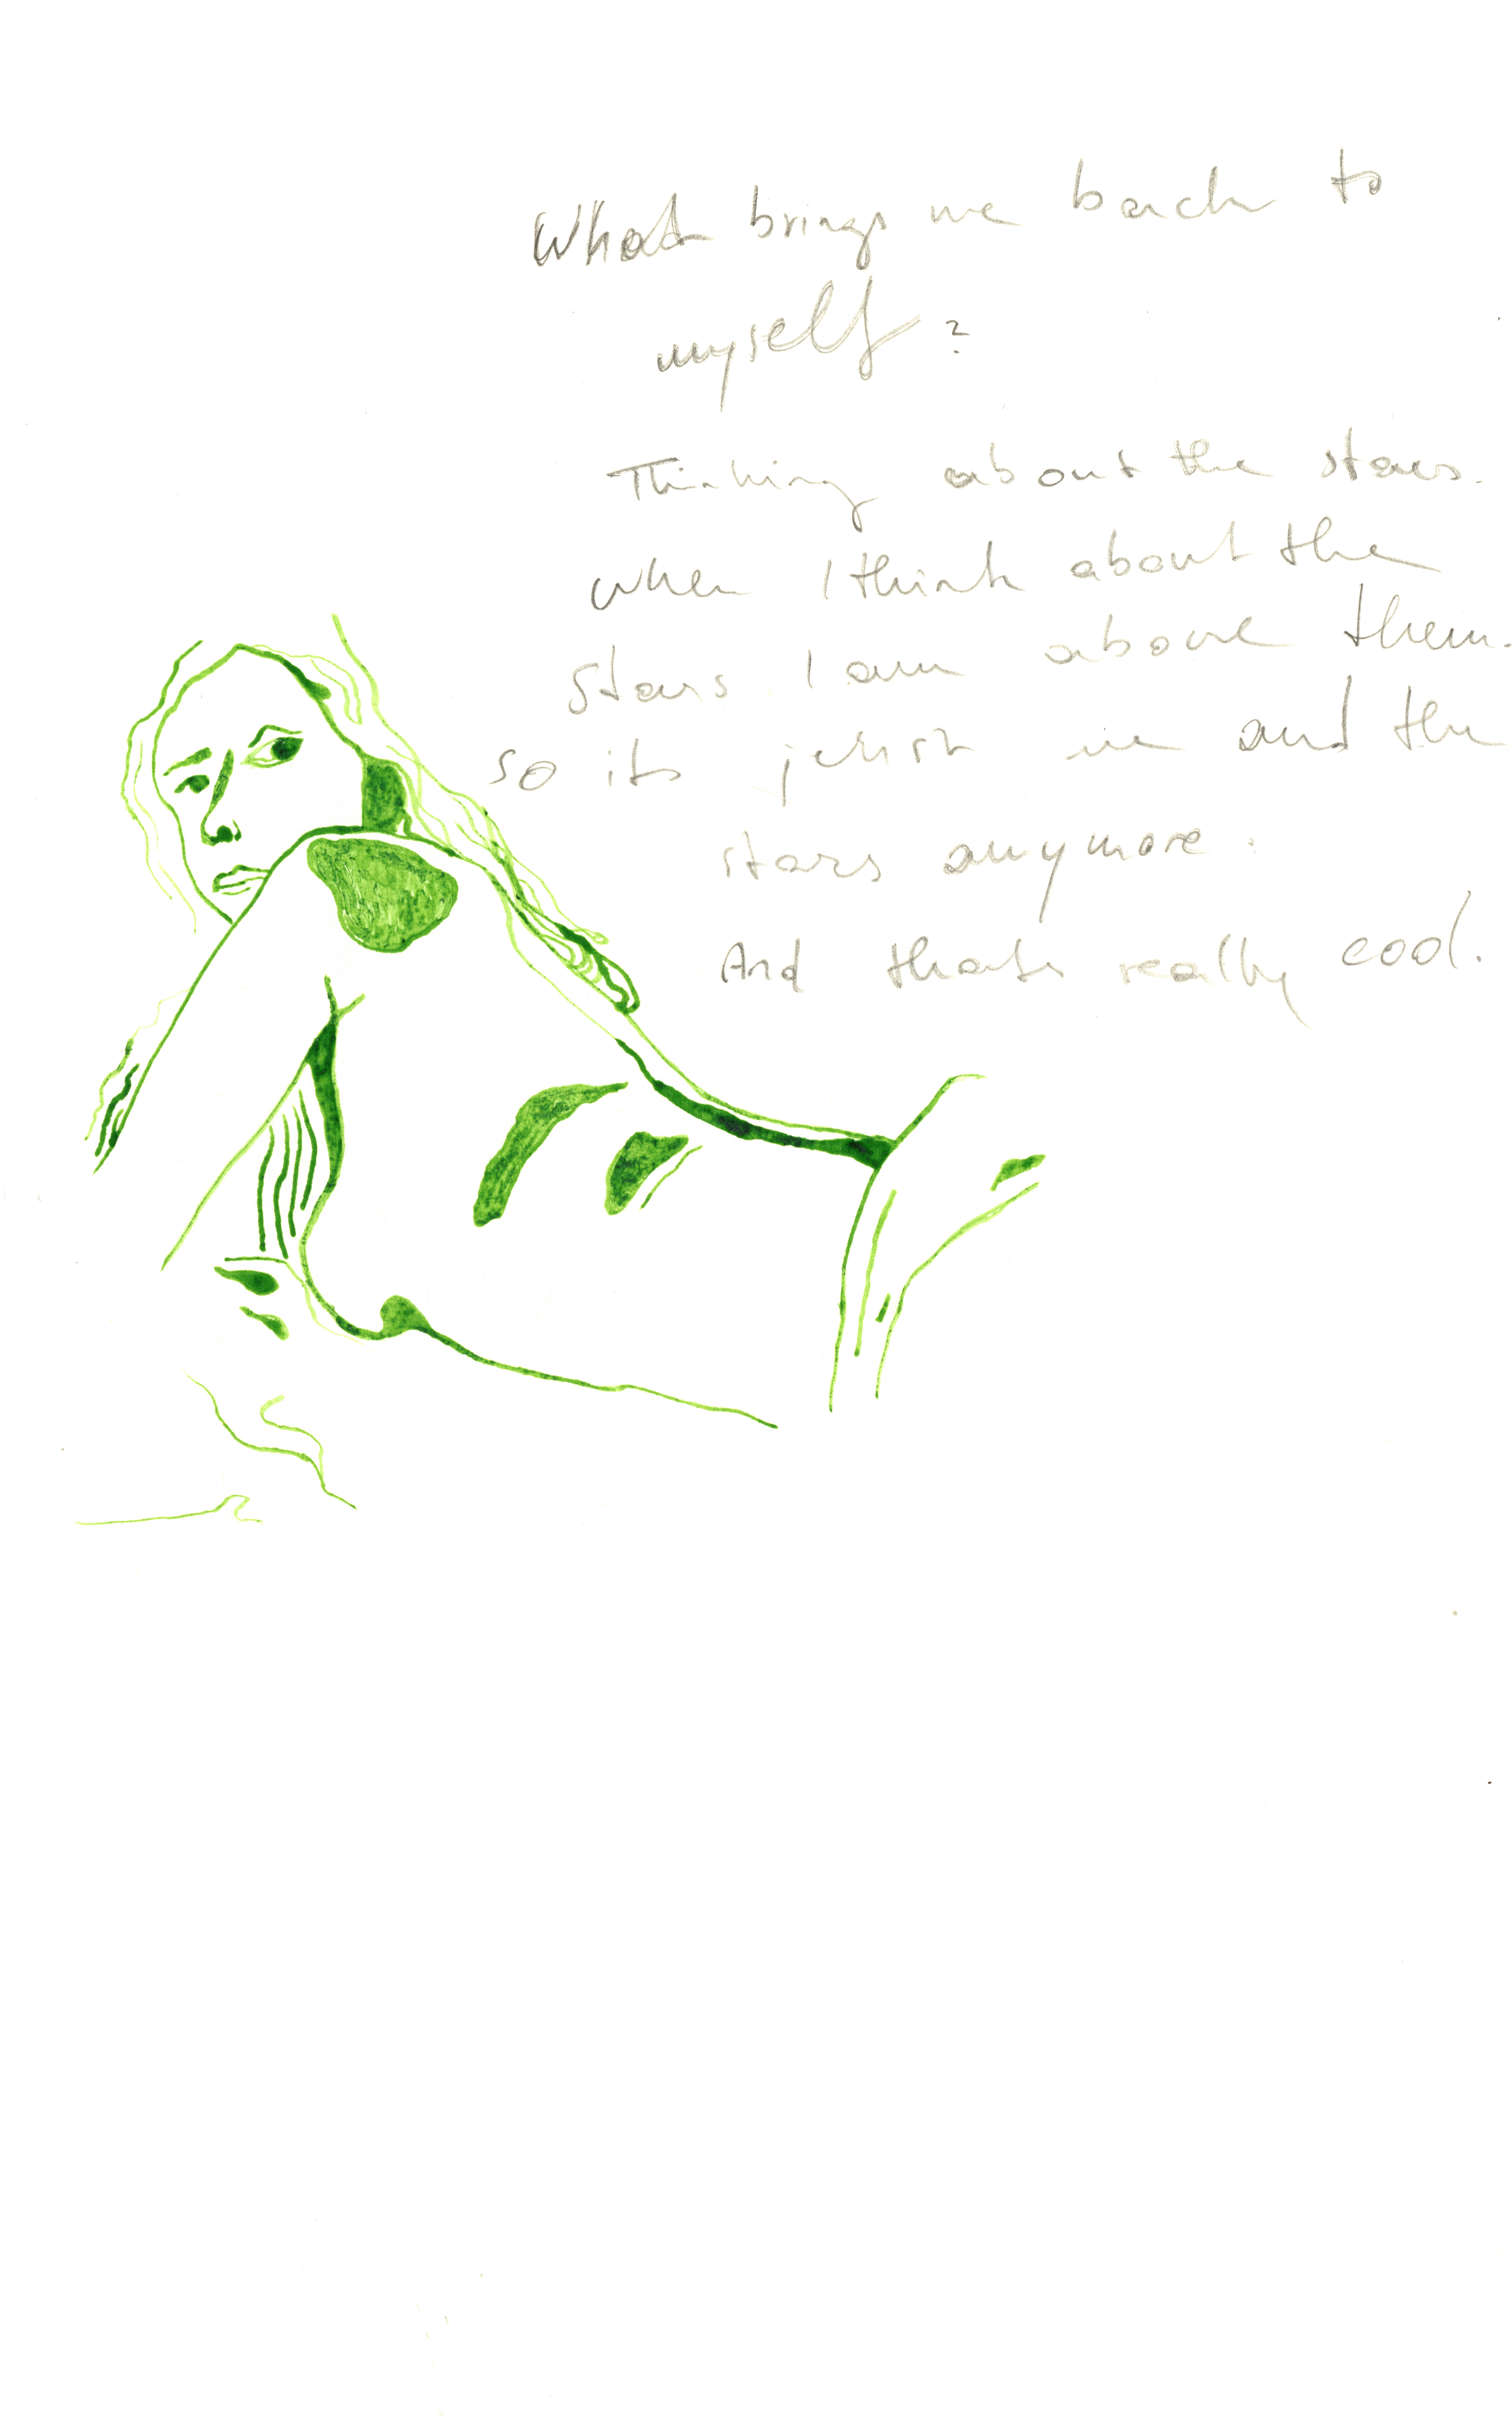 What brings me back to
myself?
Thinking about the stars.
When I think about the
stars I am above them.
so its just me and the
stars anymore.
And thats really cool.